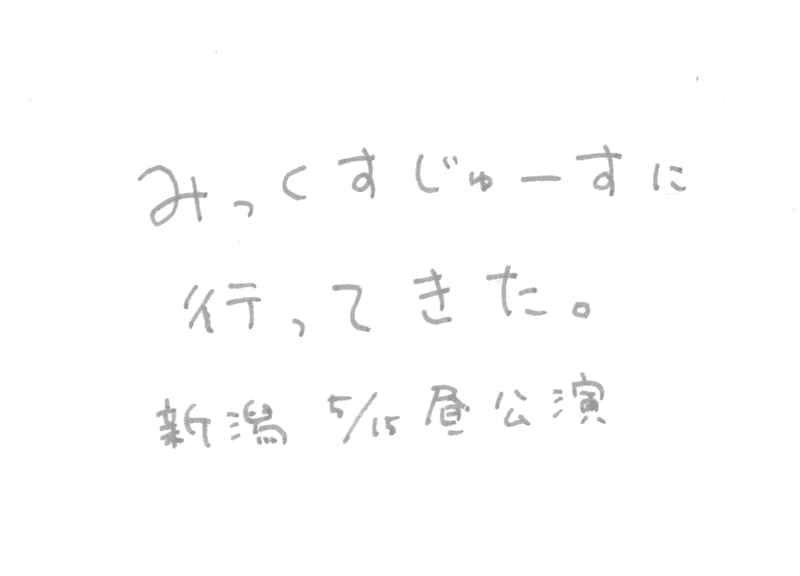 みっくすじゅーすに
行ってきた。
新潟 5/15 昼公演